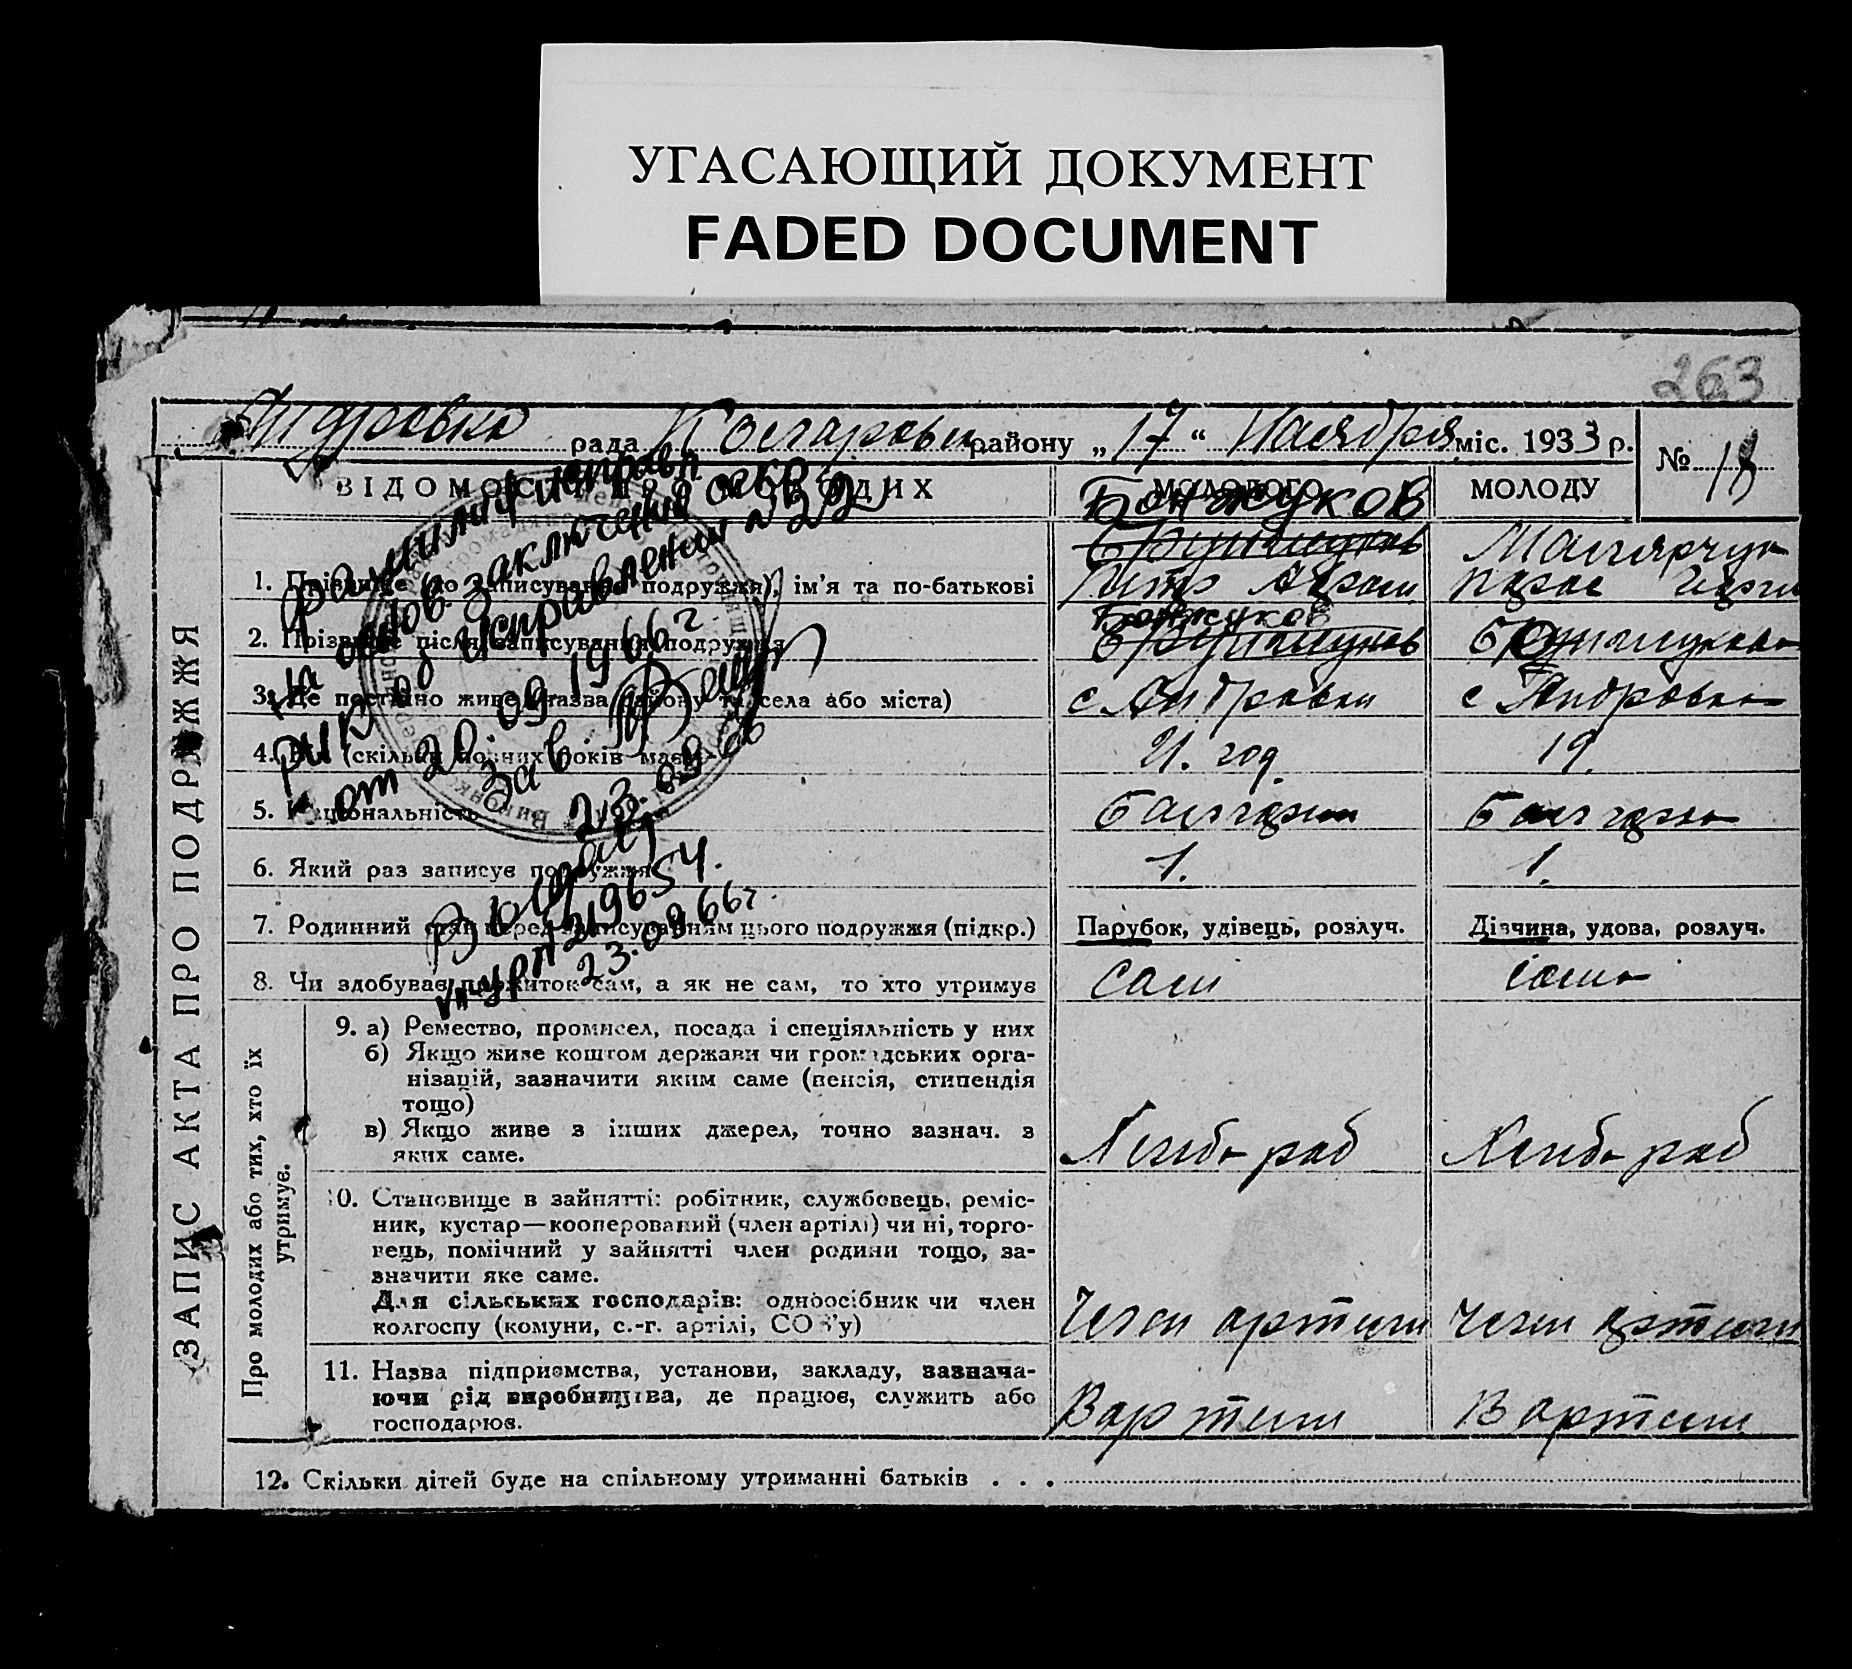 УГАСАЮЩИЙ ДОКУМЕНТ
FADED DOCUMENT
263
рада району „17“ Ноября міс. 1933 р. № 18
ВІДОМОСТІ ПРО МОЛОДИХ
МОЛОДОГО
МОЛОДУ
Бонжуков
1. Прізвище (до записування подружжя), ім’я та по-батькові
Петр
2. Прізвище після записування подружжя
Бонжуков
3. Де постійно живе (назва району та села або міста)
с Андровки
с Андровка
4. Вік (скільки повних років має)
21. год
19.
5. Національність
Болгарин
Болгарка
6. Який раз записує подружжя
1.
1.
7. Родинний стан перед записуванням цього подружжя (підкр.)
Парубок, удівець, розлуч.
Дівчина, удова, розлуч.
8. Чи здобуває прожиток сам, а як не сам, то хто утримує
сам
сама
ЗАПИС АКТА ПРО ПОДРУЖЖЯ
Про молодих або тих, хто їх утримує.
9. а) Ремество, промисел, посада і спеціяльність у них
б) Якщо живе коштом держави чи громадських орга-
нізацій, зазначити яким саме (пенсія, стипендія
тощо)
в) Якщо живе з інших джерел, точно зазнач. з
яких саме.
Хлебо раб
Хлебо раб
10. Становище в зайнятті: робітник, службовець, реміс-
ник, кустар—кооперований (член артілі) чи ні, торго-
вець, помічний у зайнятті член родини тощо, за-
значити яке саме.
Для сільських господарів: одноосібник чи член
колгоспу (комуни, с.-г. артілі, СОЗ’у)
Член артели
Член артели
11. Назва підприємства, установи, закладу, зазнача-
ючи рід виробництва, де працює, служить або
господарює.
В артели
В артели
12. Скільки дітей буде на спільному утриманні батьків . . .
на основ. заключения
об исправлении №
от 20.09.1966 г
Зав
23.09.66
219654.
23.09.66 г.